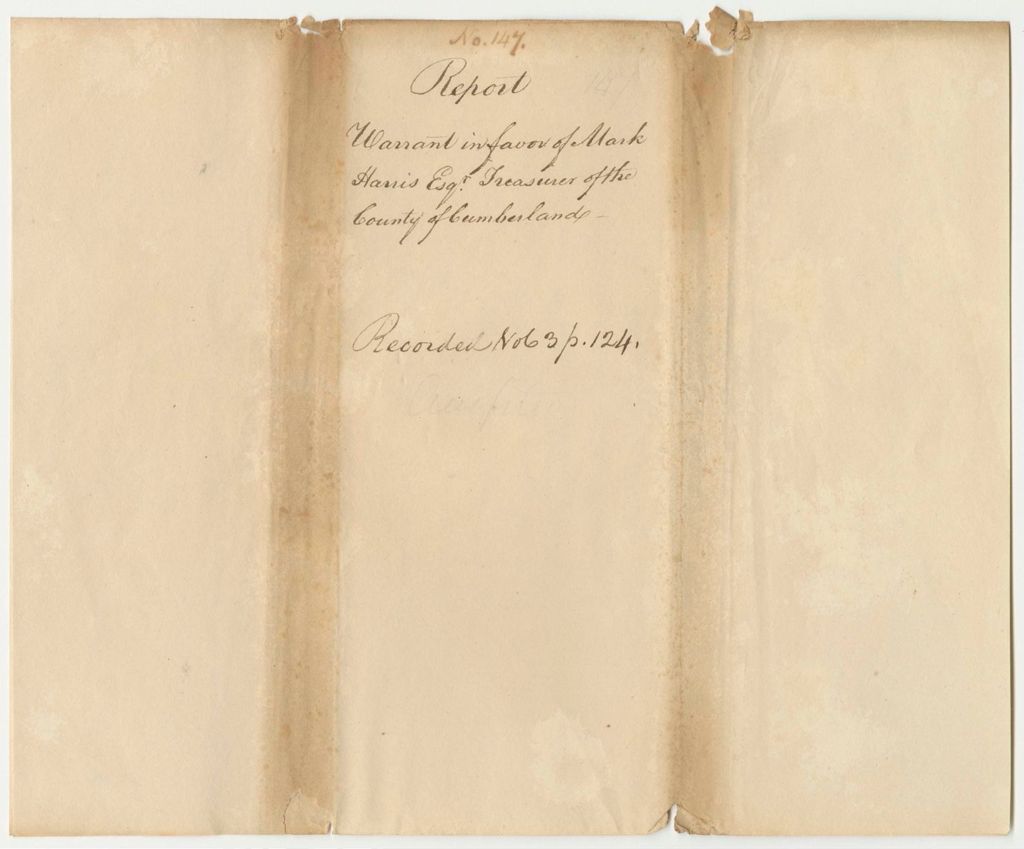 No. 147.
Report
Warrant in favor of Mark
Harris Esqr. Treasurer of the
County of Cumberland –
Recorded Vol 3 p. 124.